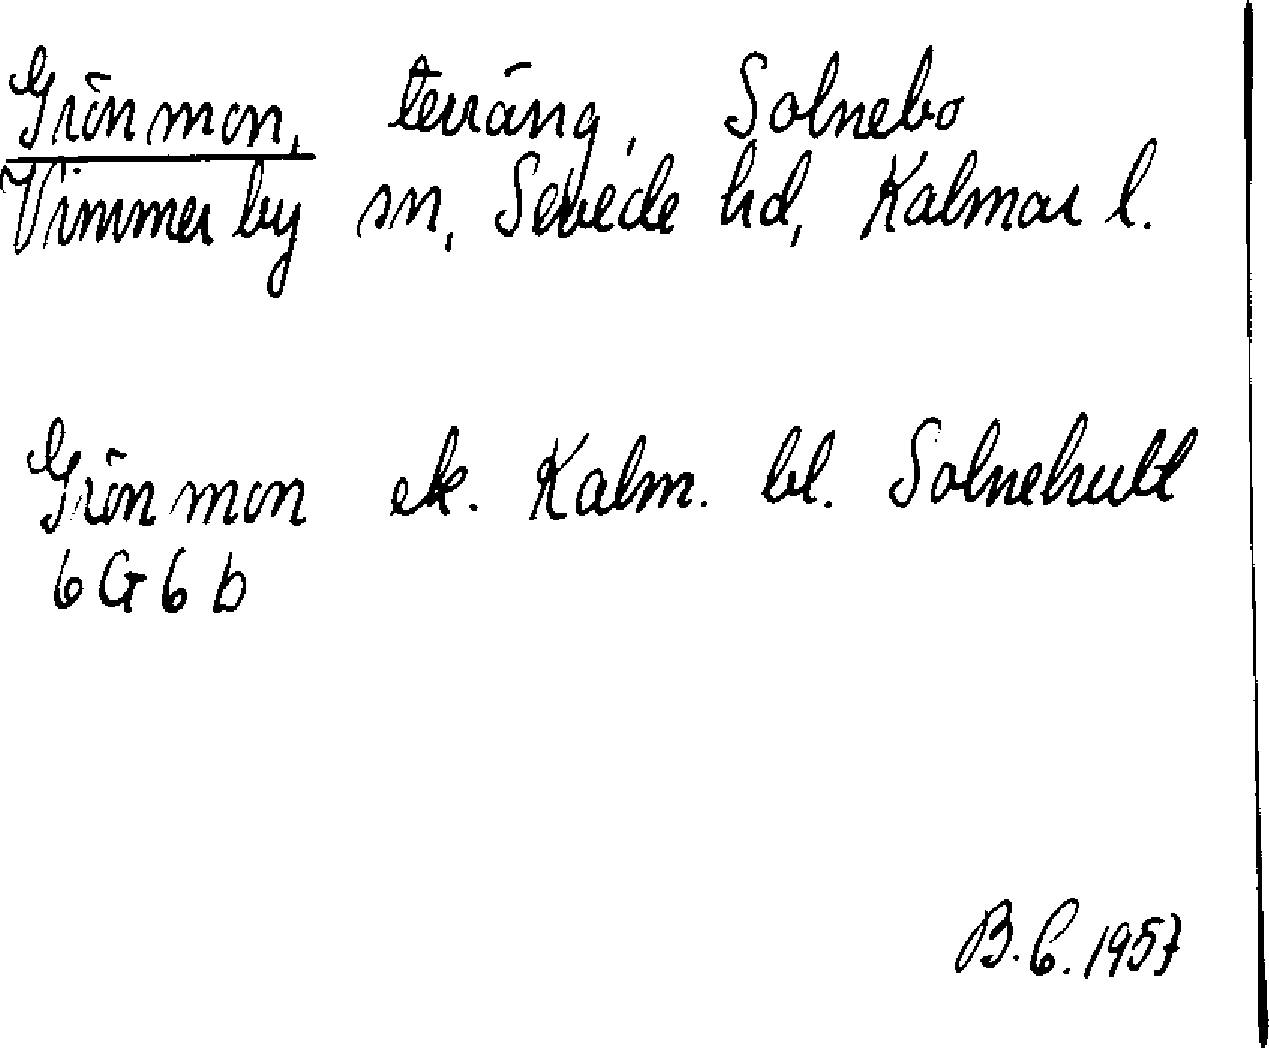 Grönmon, terräng, Solnebo
Vimmerby sn, Sevede hd, Kalmar l.
Grönmon ek. Kalm. bl. Solnehult
6G6b
B.C. 1957